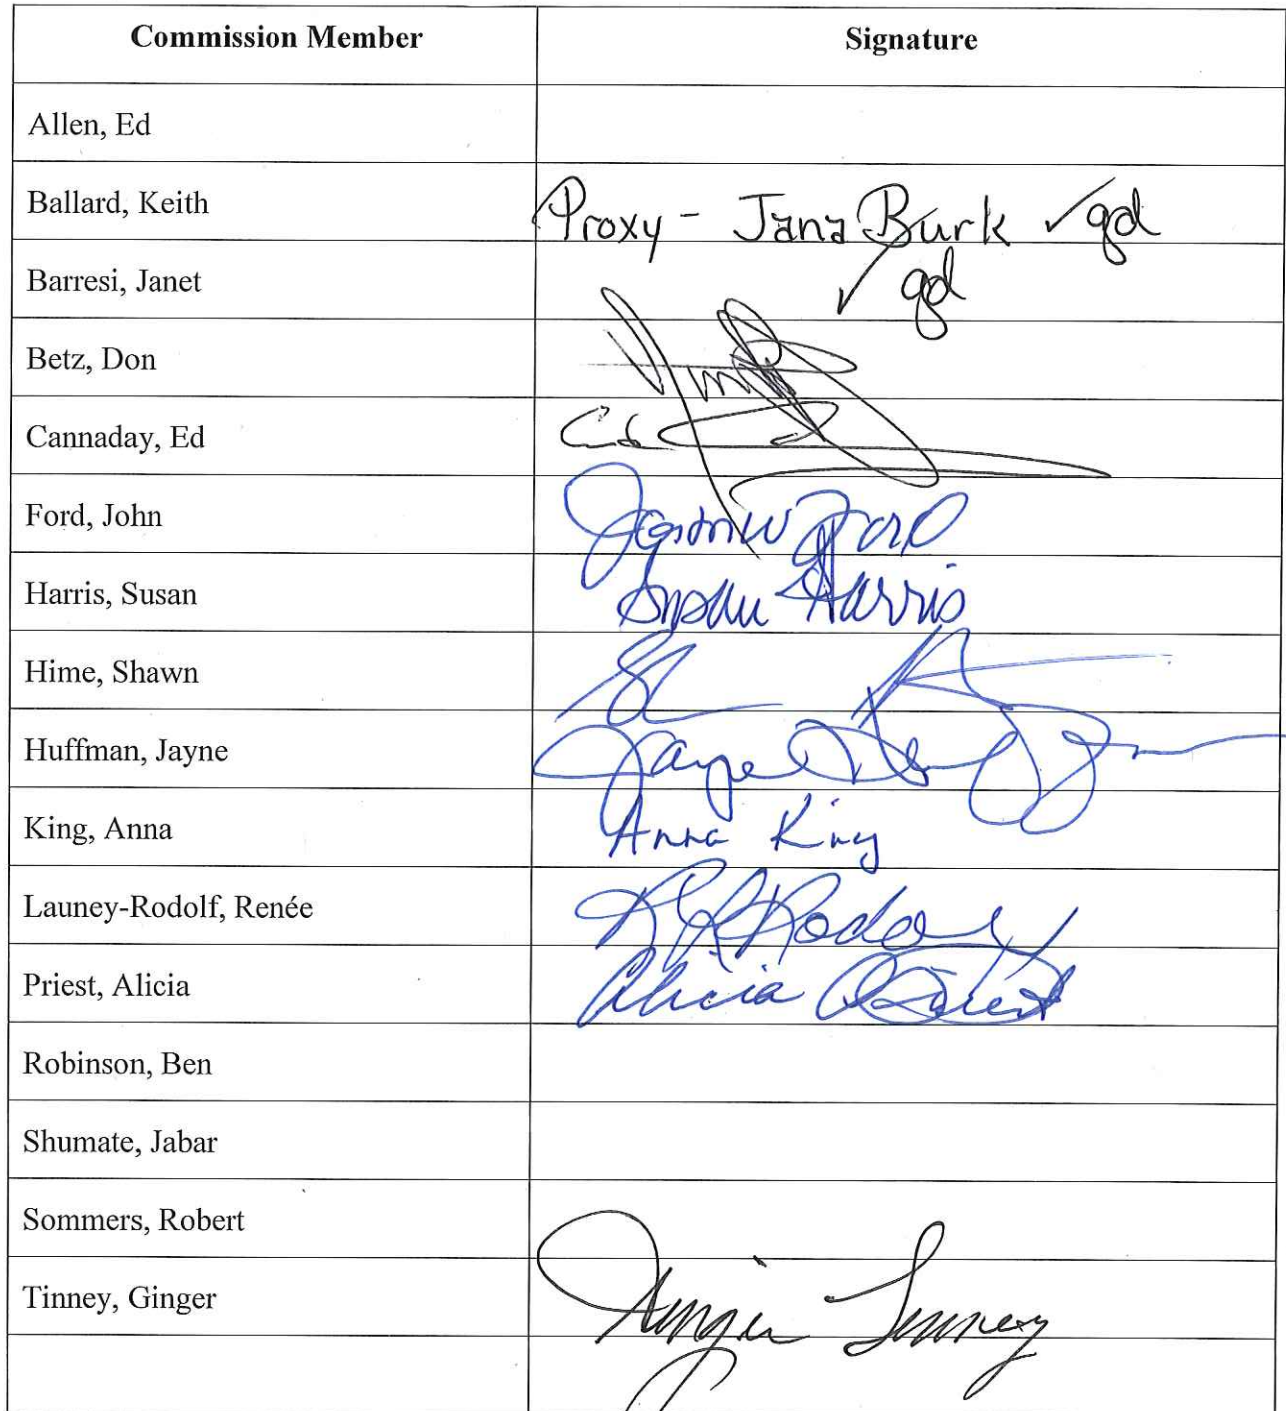 Commission Member Signature
Allen, Ed
Ballard, Keith Proxy - Jana Burk ✓ gd
Barresi, Janet ✓ gd
Betz, Don
Cannaday, Ed
Ford, John Ford
Harris, Susan Susan Harris
Hime, Shawn
Huffman, Jayne Jayne
King, Anna Anna King
Launey-Rodolf, Renée
Priest, Alicia Alicia Priest
Robinson, Ben
Shumate, Jabar
Sommers, Robert
Tinney, Ginger Ginger Tinney